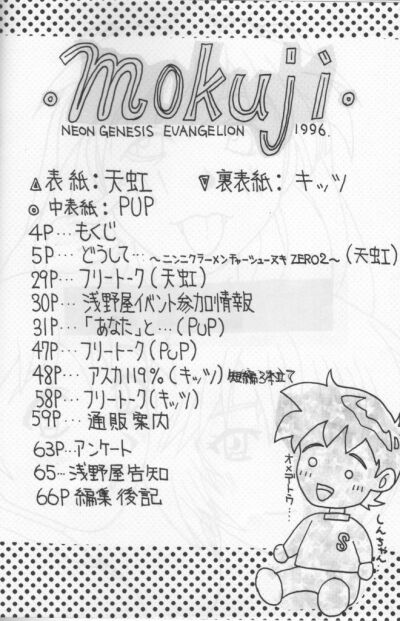 ・mokuji・
NEON GENESIS EVANGELION 1996.
▲表紙：天虹 ▼裏表紙：キッツ
◎中表紙：PUP
4P…もくじ
5P…どうして…～ニンニクラーメンチャーシューヌキZERO2～(天虹)
29P…フリートーク(天虹)
30P…浅野屋イベント参加情報
31P…「あなた」と…(PUP)
47P…フリートーク(PUP)
48P…アスカ119%(キッツ)短編3本立て
58P…フリートーク(キッツ)
59P…通販案内
63P…アンケート
65…浅野屋告知
66P 編集後記
オメデトウ…
しんちゃん
S